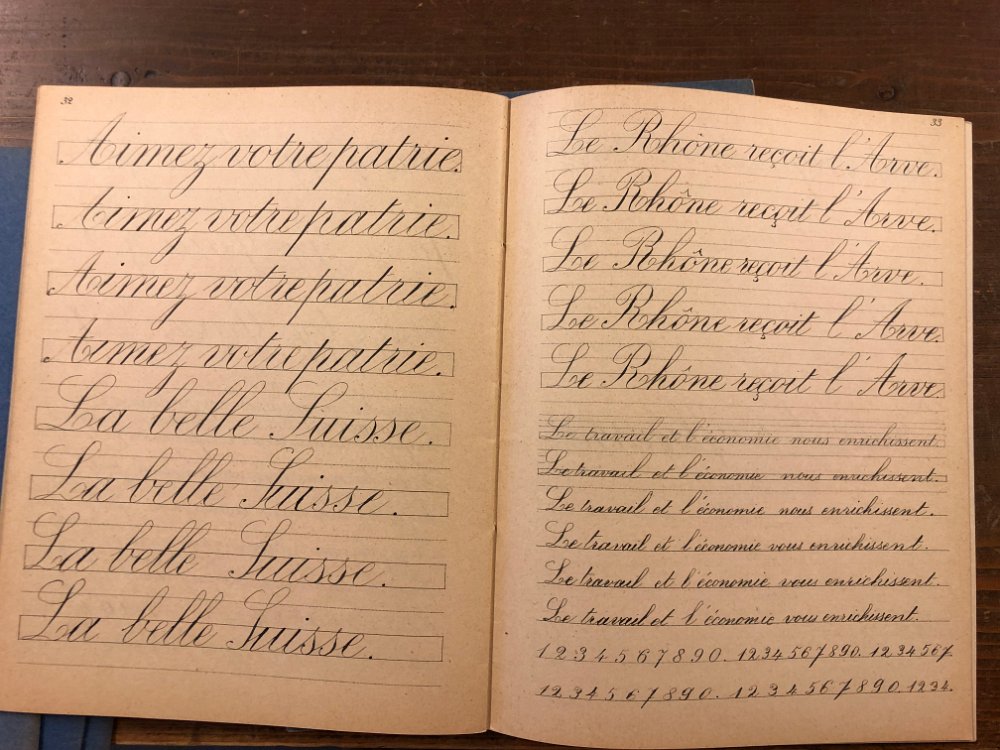 32
Aimez votre patrie.
Aimez votre patrie.
Aimez votre patrie.
Aimez votre patrie.
La belle Suisse.
La belle Suisse.
La belle Suisse.
La belle Suisse.
33
Le Rhône reçoit l'Arve.
Le Rhône reçoit l'Arve.
Le Rhône reçoit l'Arve.
Le Rhône reçoit l'Arve.
Le Rhône reçoit l'Arve.
Le travail et l'économie nous enrichissent.
Le travail et l'économie nous enrichissent.
Le travail et l'économie nous enrichissent.
Le travail et l'économie vous enrichissent.
Le travail et l'économie vous enrichissent.
Le travail et l'économie vous enrichissent.
1 2 3 4 5 6 7 8 9 0. 1 2 3 4 5 6 7 8 9 0. 1 2 3 4 5 6 7
1 2 3 4 5 6 7 8 9 0. 1 2 3 4 5 6 7 8 9 0. 1 2 3 4.